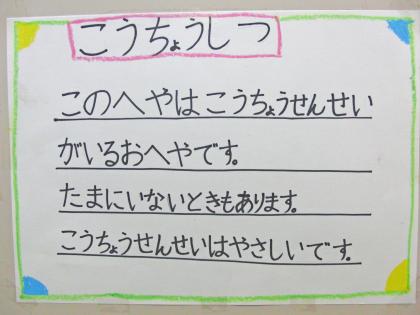 こうちょうしつ
このへやはこうちょうせんせい
がいるおへやです。
たまにいないときもあります。
こうちょうせんせいはやさしいです。